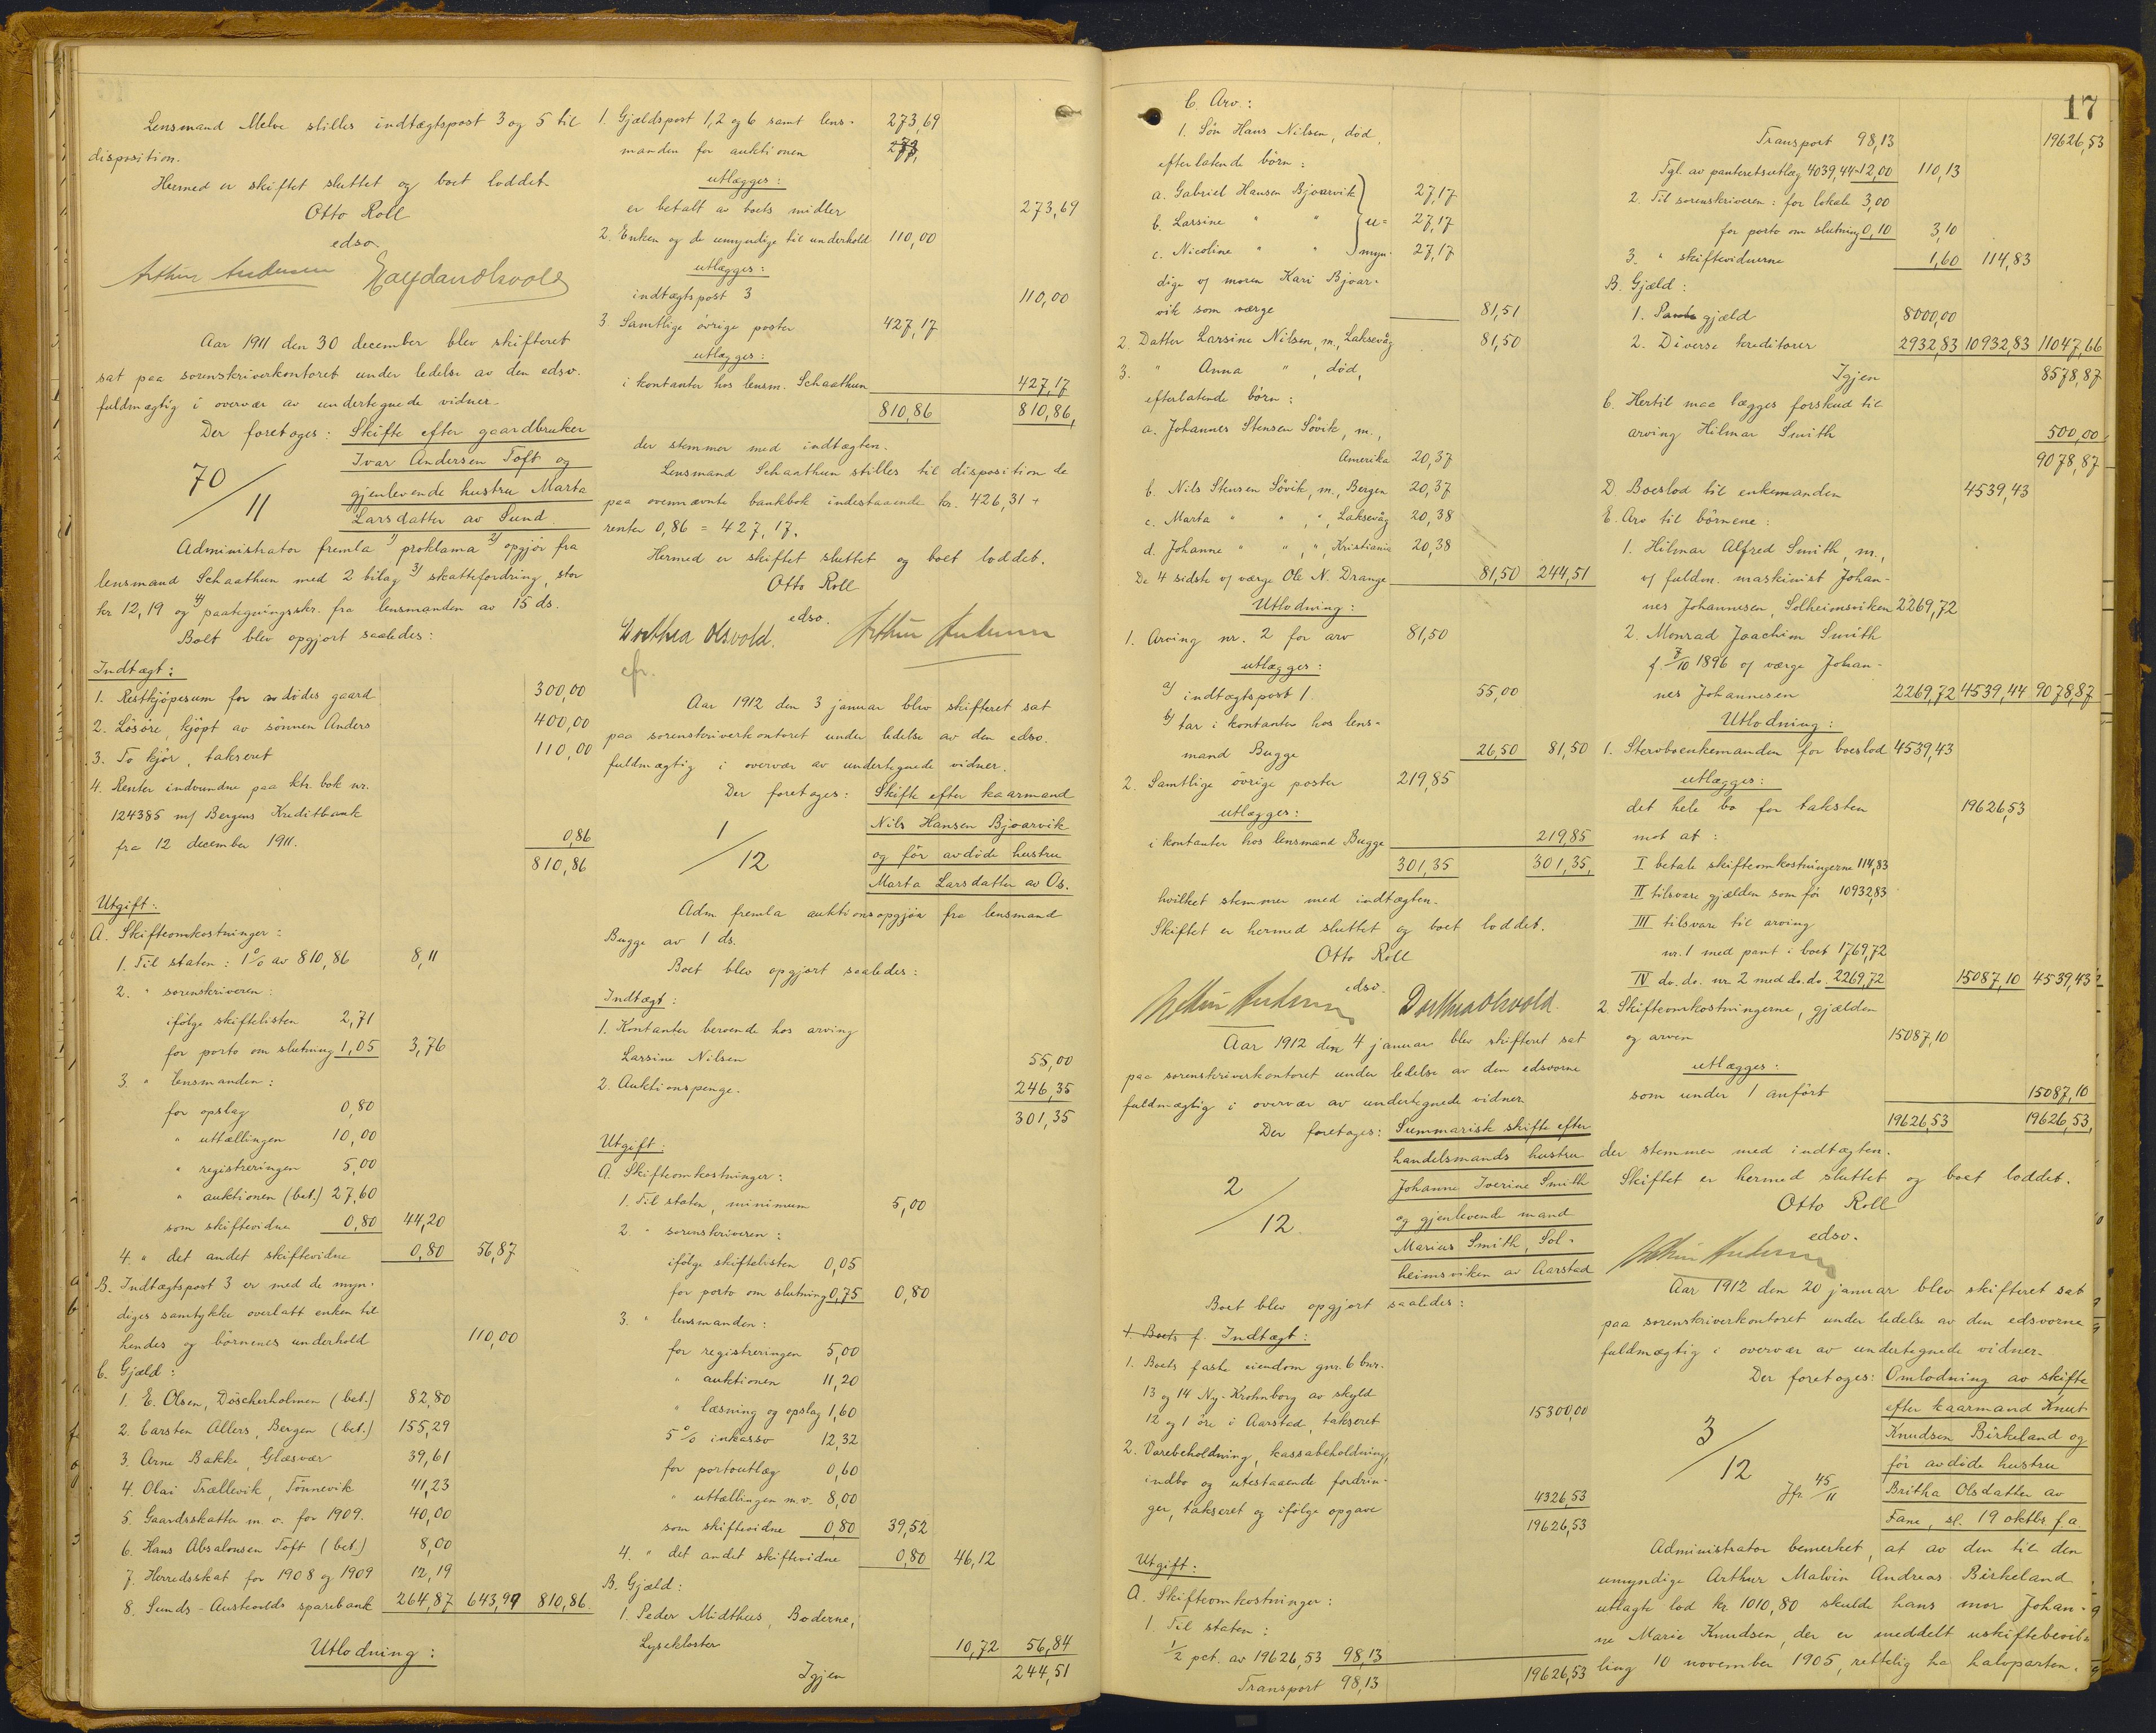 Lensmand Melve stilles indtægtspost 3 og 5 til
disposition.
Hermed er skiftet sluttet og boet loddet.
Otto Roll
edsv.
Arthur Andersen Halfdan Olsvold
Aar 1911 den 30 december blev skifteret
sat paa sorenskriverkontoret under ledelse av den edsv.
fuldmægtig i overvær av undertegnede vidner.
Der foretages: Skifte efter gaardbruker
70/11
Ivar Andersen Toft og
gjenlevende hustru Marta
Larsdatter av Sund
Administrator fremla 1) proklama 2) opgjør fra
lensmand Schaathun med 2 bilag 3) skattefordring, stor
kr 12,19 og 4) paategningsskr. fra lensmanden av 15 ds.
Boet blev opgjort saaledes:
Indtægt:
1. Restkjøpesum for avdødes gaard 300,00
2. Løsøre, kjøpt av sønnen Anders 400,00
3. To kjør, takseret 110,00
4. Renter indvundne paa ktr. bok nr.
124385 m/ Bergens Kreditbank
fra 12 december 1911. 0,86
810,86
Utgift:
A. Skifteomkostninger:
1. Til staten: 1% av 810,86 8,11
2. " sorenskriveren:
ifølge skiftelisten 2,71
for porto om slutning 1,05 3,76
3. " lensmanden:
for opslag 0,80
" uttællingen 10,00
" registreringen 5,00
" auktionen (bet.) 27,60
som skiftevidne 0,80 44,20
4. " det andet skiftevidne 0,80 56,87
B. Indtægtspost 3 er med de myn-
diges samtykke overlatt enken til
hendes og børnenes underhold 110,00
C. Gjæld:
1. E. Olsen, Døscherholmen (bet.) 82,80
2. Carsten Allers, Bergen (bet.) 155,29
3. Arne Bakke, Glæsvær 39,61
4. Olai Trællevik, Tønnevik 41,23
5. Gaardsskatter m. v. for 1909. 40,00
6. Hans Absalonsen Toft (bet.) 8,00
7. Herredsskat for 1908 og 1909 12,19
8. Sunds-Austevolds sparebank 264,87 643,99 810,86
Utlodning:
1. Gjældspost 1, 2 og 6 samt lens- 273,69
manden for auktionen 273,
utlægges:
er betalt av boets midler 273,69
2. Enken og de umyndige til underhold 110,00
utlægges:
indtægtspost 3 110,00
3. Samtlige øvrige poster 427,17
utlægges:
i kontanter hos lensm. Schaathun 427,17
810,86 810,86,
der stemmer med indtægten.
Lensmand Schaathun stilles til disposition de
paa ovennævnte bankbok indestaaende kr. 426,31 +
renter 0,86 = 427,17.
Hermed er skiftet sluttet og boet loddet.
Otto Roll
edsv.
Dorthea Olsvold. Arthur Andersen
cfr.
Aar 1912 den 3 januar blev skifteret sat
paa sorenskriverkontoret under ledelse av den edsv.
fuldmægtig i overvær av undertegnede vidner.
Der foretages: Skifte efter kaarmand
1/12
Nils Hansen Bjoarvik
og før avdøde hustru
Marta Larsdatter av Os.
Adm fremla auktionsopgjør fra lensmand
Bugge av 1 ds.
Boet blev opgjort saaledes:
Indtægt:
1. Kontanter beroende hos arving
Larsine Nilsen 55,00
2. Auktionspenge. 246,35
301,35
Utgift:
A. Skifteomkostninger:
1. Til staten, minimum 5,00
2. " sorenskriveren:
ifølge skiftelisten 0,05
for porto om slutning 0,75 0,80
3. " lensmanden:
for registreringen 5,00
" auktionen 11,20
" læsning og opslag 1,60
5% inkasso 12,32
for portoutlæg 0,60
" uttællingen m.v. 8,00
som skiftevidne 0,80 39,52
4. " det andet skiftevidne 0,80 46,12
B. Gjæld:
1. Peder Midthus, Boderne,
Lysekloster 10,72 56,84
Igjen 244,51
C. Arv.:
1. Søn Hans Nilsen, død,
efterlatende børn:
a. Gabriel Hansen Bjoarvik 27,17
b. Larsine " " u- 27,17
c. Nicoline " " myn- 27,17
dige v/ moren Kari Bjoar-
vik som værge 81,51
2. Datter Larsine Nilsen, m., Laksevåg 81,50
3. " Anna " , død,
efterlatende børn:
a. Johannes Stensen Søvik, m.,
Amerika 20,37
b. Nils Stensen Søvik, m., Bergen 20,37
c. Marta " " , " , Laksevåg 20,38
d. Johanne " " , " , Kristiania 20,38
De 4 sidste v/ værge Ole N. Drange 81,50 244,51
Utlodning:
1. Arving nr. 2 for arv 81,50
utlægges:
a) indtægtspost 1. 55,00
b) tar i kontanter hos lens-
mand Bugge 26,50 81,50
2. Samtlige øvrige poster 219,85
utlægges:
i kontanter hos lensmand Bugge 219,85
301,35 301,35,
hvilket stemmer med indtægten.
Skiftet er hermed sluttet og boet loddet.
Otto Roll
edsv.
Arthur Andersen Dorthea Olsvold.
Aar 1912 den 4 januar blev skifteret sat
paa sorenskriverkontoret under ledelse av den edsvorne
fuldmægtig i overvær av undertegnede vidner
Der foretages: Summarisk skifte efter
handelsmands hustru
2/12
Johanne Iverine Smith
og gjenlevende mand
Marius Smith, Sol-
heimsviken av Aarstad
Boet blev opgjort saaledes:
1. Boets f. Indtægt:
1. Boets faste eiendom gnr. 6 bnr.
13 og 14 Ny-Krohnborg av skyld
12 og 1 øre i Aarstad, takseret 15300,00
2. Varebeholdning, kassabeholdning,
indbo og utestaaende fordrin-
ger, takseret og ifølge opgave 4326,53
19626,53
Utgift:
A. Skifteomkostninger:
1. Til staten:
1/2 pct. av 19626,53 98,13
Transport 98,13 19626,53
17
Transport 98,13 19626,53
Tgl. av panteretsutlæg 4039,44 - 12,00 110,13
2. Til sorenskriveren: for lokale 3,00
for porto om slutning 0,10 3,10
3. " skiftevidnerne 1,60 114,83
B. Gjæld:
1. Pantegjæld 8000,00
2. Diverse kreditorer 2932,83 10932,83 11047,66
Igjen 8578,87
C. Hertil maa lægges forskud til
arving Hilmar Smith 500,00
9078,87
D. Boeslod til enkemanden 4539,43
E. Arv til børnene:
1. Hilmar Alfred Smith, m.,
v/ fuldm. maskinist Johan-
nes Johannesen, Solheimsviken 2269,72
2. Monrad Joachim Smith
f. 7/10 1896 v/ værge Johan-
nes Johannesen 2269,72 4539,44 9078,87
Utlodning:
1. Stervboenkemanden for boeslod 4539,43
utlægges:
det hele bo for taksten 19626,53
mot at:
I betale skifteomkostningerne 114,83
II tilsvare gjælden som før 10932,83
III tilsvare til arving
nr. 1 med pant i boet 1769,72
IV do. do. nr 2 med do. do. 2269,72 15087,10 4539,43
2. Skifteomkostningerne, gjælden
og arven 15087,10
utlægges:
som under 1 anført 15087,10
19626,53 19626,53,
der stemmer med indtægten.
Skiftet er hermed sluttet og boet loddet.
Otto Roll
edsv.
Arthur Andersen
Aar 1912 den 20 januar blev skifteret sat
paa sorenskriverkontoret under ledelse av den edsvorne
fuldmægtig i overvær av undertegnede vidner.
Der foretages: Omlodning av skifte
efter kaarmand Knut
3/12
Knudsen Birkeland og
før avdøde hustru
Jfr. 45/11
Britha Olsdatter av
Fane, sl. 19 oktbr. f.a.
Administrator bemerket, at av den til den
umyndige Arthur Malvin Andreas Birkeland
utlagte lod kr. 1010,80 skulde hans mor Johan-
ne Marie Knudsen, der er meddelt uskiftebevil-
ling 10 november 1905, rettelig ha halvparten.